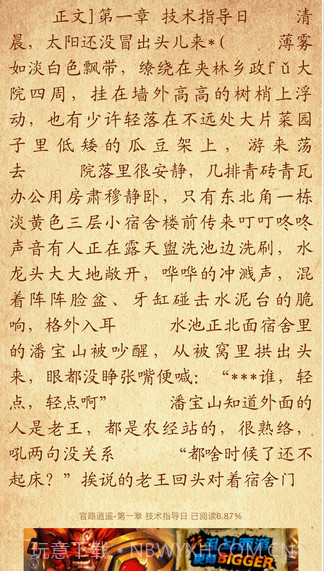 正文]第一章 技术指导日 清
晨，太阳还没冒出头儿来*( 薄雾
如淡白色飘带，缭绕在夹林乡政fǔ大
院四周，挂在墙外高高的树梢上浮
动，也有少许轻落在不远处大片菜园
子里低矮的瓜豆架上，游来荡
去 院落里很安静，几排青砖青瓦
办公用房肃穆静卧，只有东北角一栋
淡黄色三层小宿舍楼前传来叮叮咚咚
声音有人正在露天盥洗池边洗刷，水
龙头大大地敞开，哗哗的冲溅声，混
着阵阵脸盆、牙缸碰击水泥台的脆
响，格外入耳 水池正北面宿舍里
的潘宝山被吵醒，从被窝里拱出头
来，眼都没睁张嘴便喊：“***谁，轻
点，轻点啊” 潘宝山知道外面的
人是老王，都是农经站的，很熟络，
吼两句没关系 “都啥时候了还不
起床？”挨说的老王回头对着宿舍门
官路逍遥-第一章 技术指导日 已阅读6.87%
乱斗西游
BIGGER
玩意下载·NBWYKH.COM·CN